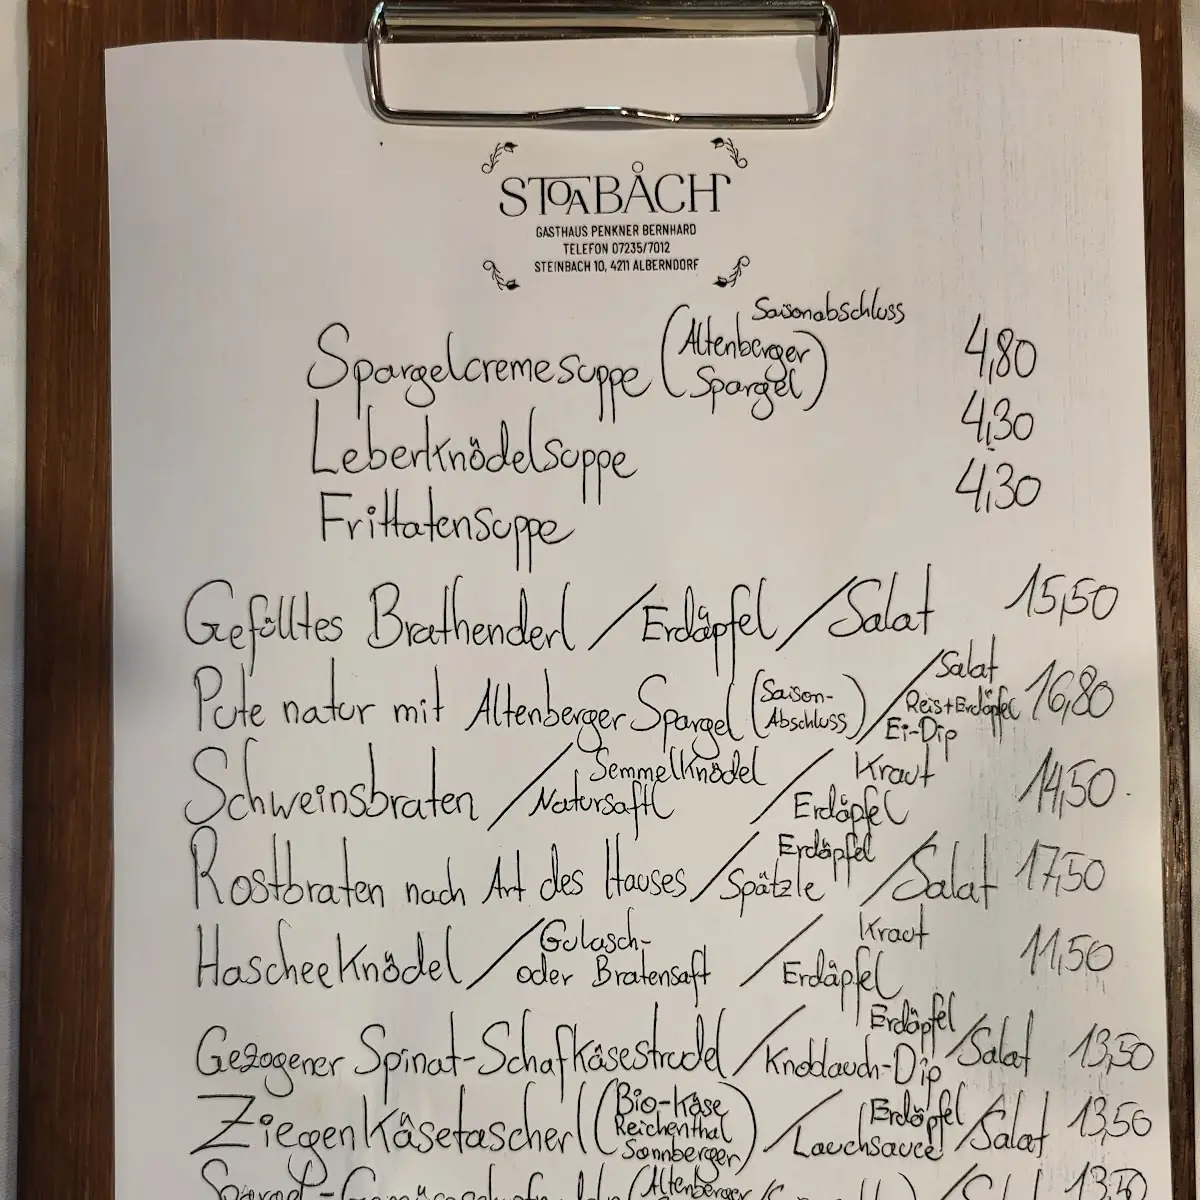 STOABÅCH
GASTHAUS PENKNER BERNHARD
TELEFON 07235/7012
STEINBACH 10, 4211 ALBERNDORF
Saisonabschluss
Spargelcremesuppe (Altenberger Spargel) 4,80
Leberknödelsuppe 4,30
Frittatensuppe 4,30
Gefülltes Brathenderl / Erdäpfel / Salat 15,50
Pute natur mit Altenberger Spargel (Saison-Abschluss) / Salat Reis+Erdäpfel Ei-Dip 16,80
Schweinsbraten / Semmelknödel Natursaftl / Kraut Erdäpfel 14,50
Rostbraten nach Art des Hauses / Erdäpfel Spätzle / Salat 17,50
Hascheeknödel / Gulasch- oder Bratensaft / Kraut Erdäpfel 11,50
Gezogener Spinat-Schafkäsestrudel / Erdäpfel Knoblauch-Dip / Salat 13,50
Ziegenkäsetascherl (Bio-Käse Reichenthal Sonnberger) / Erdäpfel Lauchsauce / Salat 13,50
Spargel-Gemüse (Altenberger / Salat 13,50